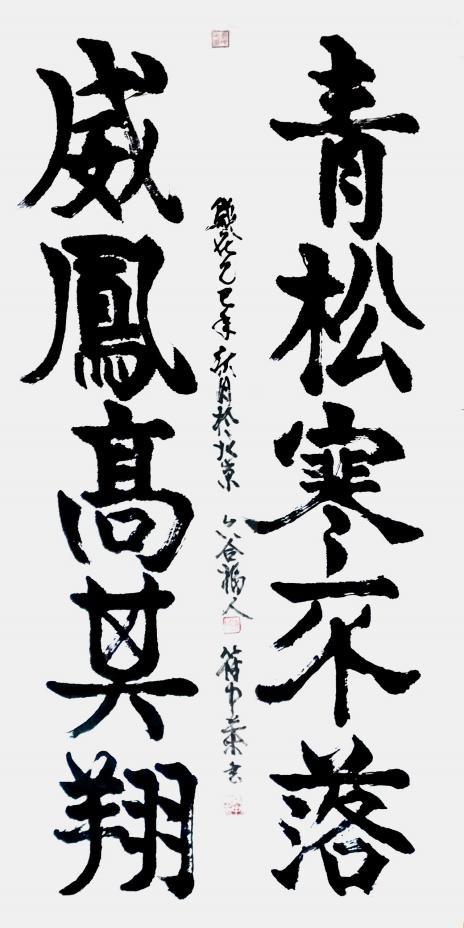 青松寒不落
歲在乙巳年秋月於北京 六合福人 符中 書
威鳳高其翔